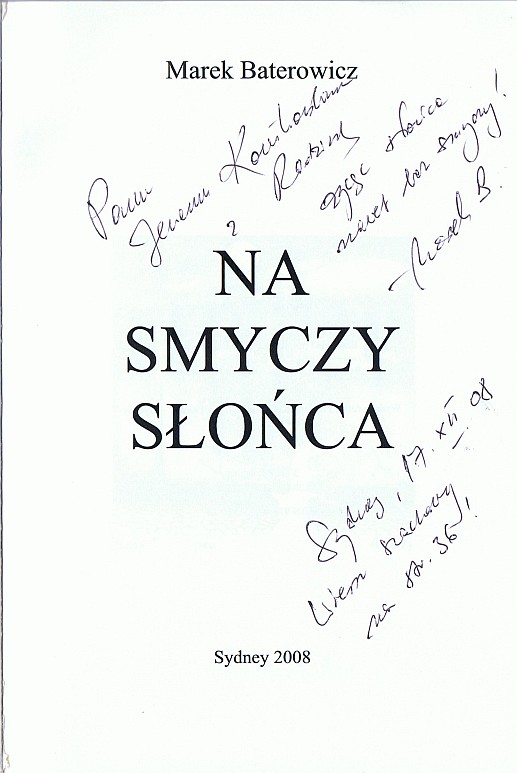 Marek Baterowicz
Panu
Jerzemu
z Rodziną
życzę słońca
nawet bez smyczy!
Marek B.
NA
SMYCZY
SŁOŃCA
Sydney, 17. XII. 08
Wiersz szachowy
na str. 36,
Sydney 2008